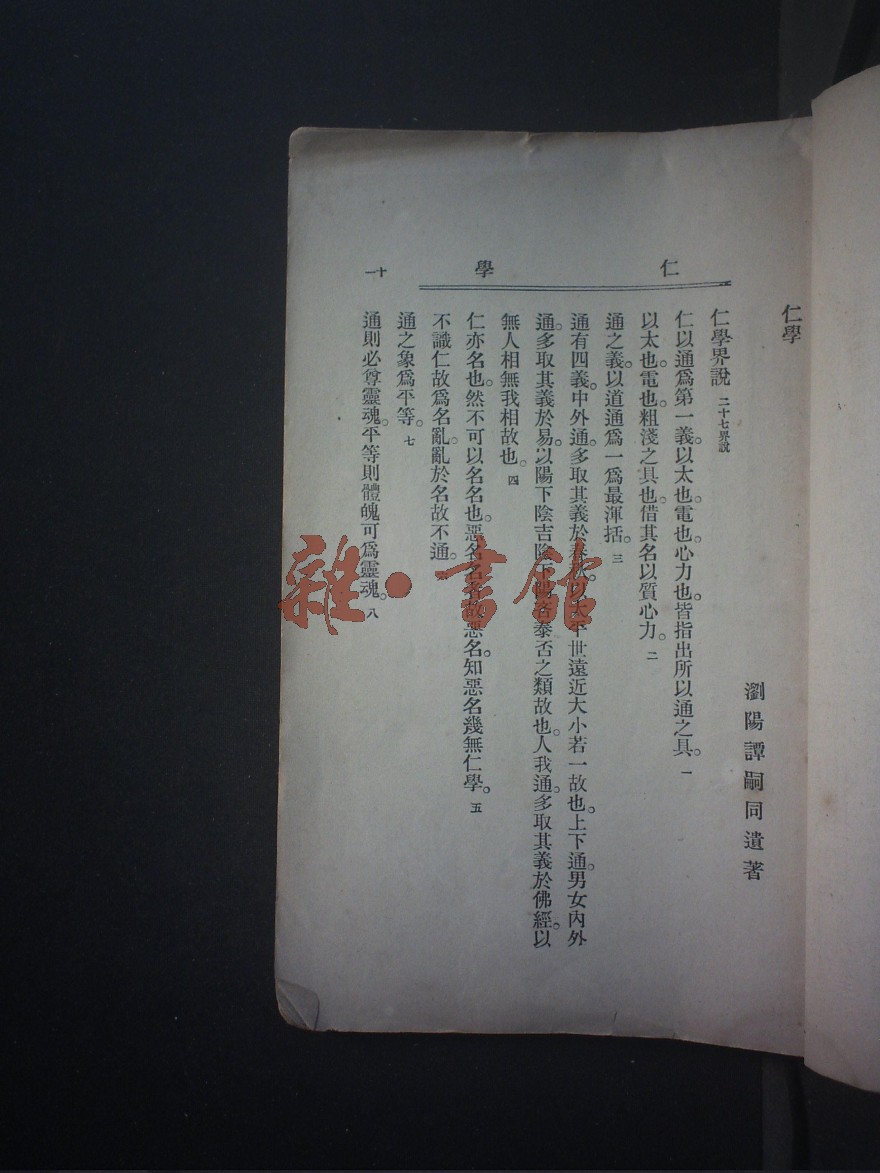 仁學
瀏陽譚嗣同遺著
仁學界說 二十七界說
仁以通爲第一義。以太也。電也。心力也。皆指出所以通之具。 一
以太也。電也。粗淺之具也。借其名以質心力。 二
通之義。以道通爲一爲最渾括。 三
通有四義。中外通。多取其義於春秋。以太平世遠近大小若一故也。上下通。男女內外
通。多取其義於易。以陽下陰吉陰下陽吝泰否之類故也。人我通。多取其義於佛經。以
無人相無我相故也。 四
仁亦名也。然不可以名名也。惡名名者故惡名。知惡名幾無仁學。 五
不識仁故爲名亂。亂於名故不通。
通之象爲平等。 七
通則必尊靈魂。平等則體魄可爲靈魂。 八
仁 學
十一
雜·書館